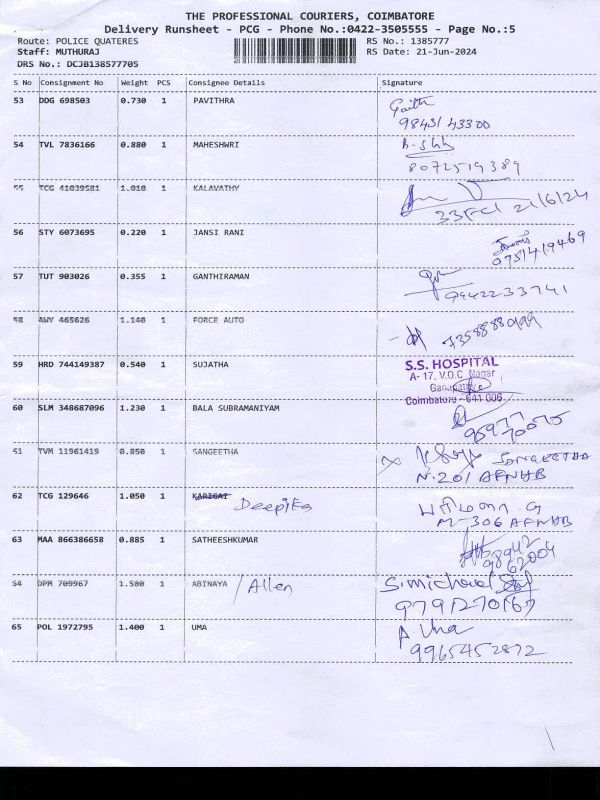 THE PROFESSIONAL COURIERS, COIMBATORE
Delivery Runsheet - PCG - Phone No.:0422-3505555 - Page No.:5
Route: POLICE QUATERES RS No.: 1385777
Staff: MUTHURAJ RS Date: 21-Jun-2024
DRS No.: DCJB138577705
S No Consignment No Weight PCS Consignee Details Signature
53 DDG 698503 0.730 1 PAVITHRA
98431 43300
54 TVL 7836166 0.880 1 MAHESHWRI
8072519389
55 TCG 41039581 1.010 1 KALAVATHY
21/6/24
56 STY 6073695 0.220 1 JANSI RANI
9751419469
57 TUT 903026 0.355 1 GANTHIRAMAN
9942233741
58 AWY 465626 1.140 1 FORCE AUTO
59 HRD 744149387 0.540 1 SUJATHA
S.S. HOSPITAL
A- 17, V.O.C Nagar
Coimbatore - 641 006
60 SLM 348687096 1.230 1 BALA SUBRAMANIYAM
95977
70075
TVM 11961419 0.850 1 SANGEETHA SANGEETHA
N.201 AFNHB
62 TCG 129646 1.050 1 KARIGAI Deepika
M-306 AFNHB
63 MAA 866386658 0.885 1 SATHEESHKUMAR
98942
62004
64 DPM 709967 1.580 1 ABINAYA / Allen S.michael
9791270167
65 POL 1972795 1.400 1 UMA A Uma
9965452872